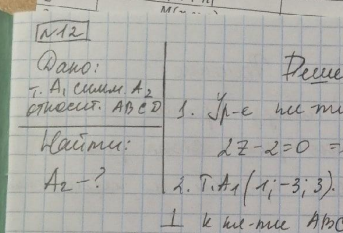 N12
Дано:
т. A₁ симм. A₂
относит. ABCD
Найти:
A₂ - ?
Реше
1. Ур-е пл-ти
2z - 2 = 0 =
2. т. A₁(1; -3; 3).
⊥ к пл-ти ABC